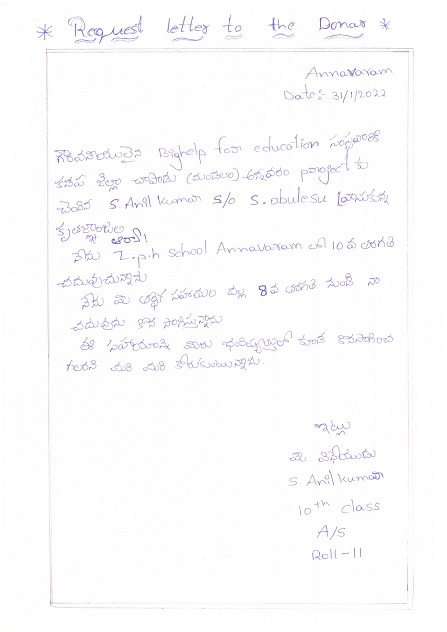 * Request letter to the Donar *
Annavaram
Date:- 31/1/2022
గౌరవనీయులైన Bighelp for education సంస్థవారికి
కడప జిల్లా చాపాడు (మండలం) అన్నవరం project కు
చెందిన S. Anil Kumar S/o S. obulesu వ్రాసుకున్న
కృతజ్ఞతాంజలి
ఆర్యా!
నేను Z.p.h School Annavaram లో 10 వ తరగతి
చదువుచున్నాను
నేను మీ ఆర్థిక సహాయం వల్ల 8 వ తరగతి నుండి నా
చదువును కొన సాగిస్తున్నాను
ఈ సహాయాన్ని మీరు భవిష్యత్తులో కూడ కొనసాగించ
గలరని మరి మరి కోరుకుంటున్నాను.
ఇట్లు
మీ విధేయుడు
S. Anil Kumar
10th class
A/S
Roll-11